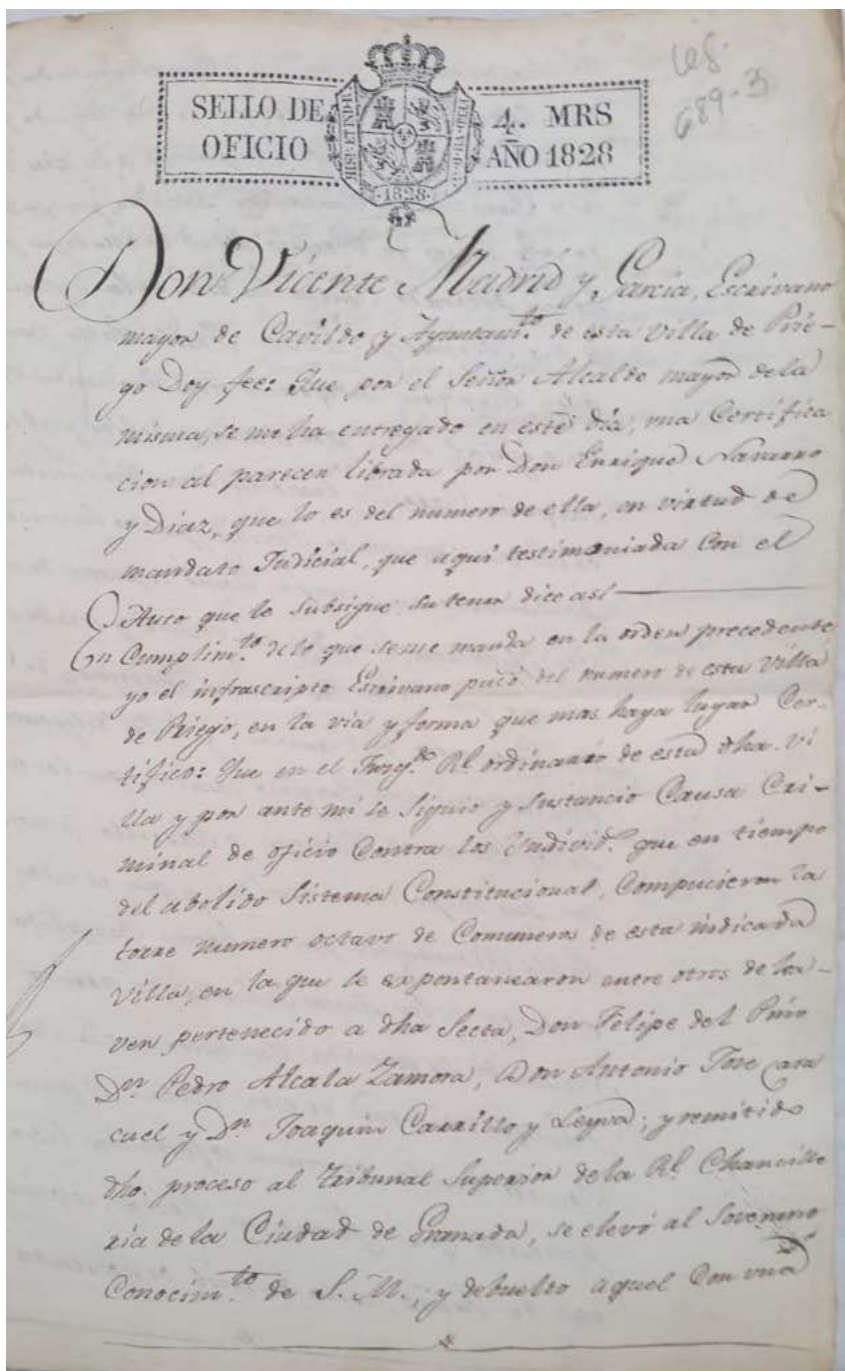 Leg.
689-3
SELLO DE
OFICIO
4. MRS
AÑO 1828
HISP. ET IND. R
1828
Don Vicente Madrid y Garcia, Escrivano
mayor de Cavildo y Ayuntam.to de esta Villa de Prie-
go Doy fee: Que por el Señor Alcalde mayor de la
misma, se me ha entregado en este dia, una Certifica
cion al parecer librada por Don Enrique Navarro
y Diaz, que lo es del numero de ella, en virtud de
mandato Judicial, que aqui testimoniada Con el
Auto que le Subsigue, su tenor dice asi
En Cumplim.to de lo que se me manda en la orden precedente
yo el infrascripto Escrivano puco del numero de esta Villa
de Priego, en la via y forma que mas haya lugar Cer-
tifico: Que en el Juzg.do Rl. ordinario de esta dha. Vi
lla y por ante mi se Siguio y Sustancio Causa Cri-
minal de oficio Contra los Individ.s que en tiempo
del abolido Sistema Constitucional, Compucieron la
torre numero octavo de Comuneros de esta indicada
Villa, en la que se expontanearon entre otros de ha-
ver pertenecido a dha Secta, Don Felipe del Puio
Dn. Pedro Alcala Zamora, Don Antonio Jose Cara
cuel y Dn. Joaquin Carrillo y Leyva; y remitido
dho. proceso al Tribunal Superior de la Rl. Chancille
ria de la Ciudad de Granada, se elevó al Soverano
Conocim.to de S. M., y debuelto aquel Con una